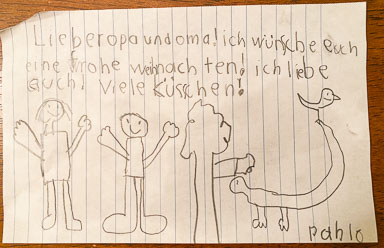 Lieber opa und oma! ich wünsche Euch
eine frohe weihnachten! ich liebe
euch! Viele Küsschen!
pablo